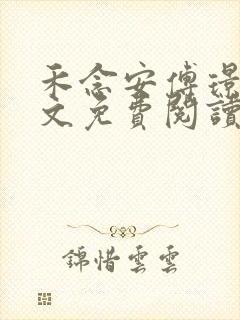 禾念安傅璟
文免費閱讀
錦惜雲雲